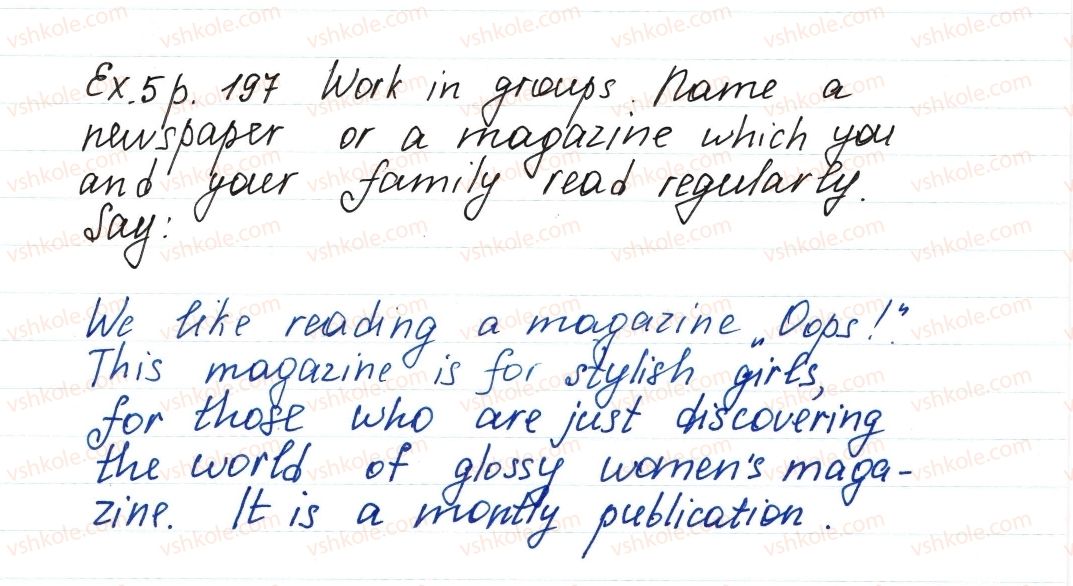 Ex. 5 p. 197 Work in groups. Name a
newspaper or a magazine which you
and your family read regularly.
Say:
We like reading a magazine „Oops!"
This magazine is for stylish girls,
for those who are just discovering
the world of glossy women's maga-
zine. It is a montly publication.